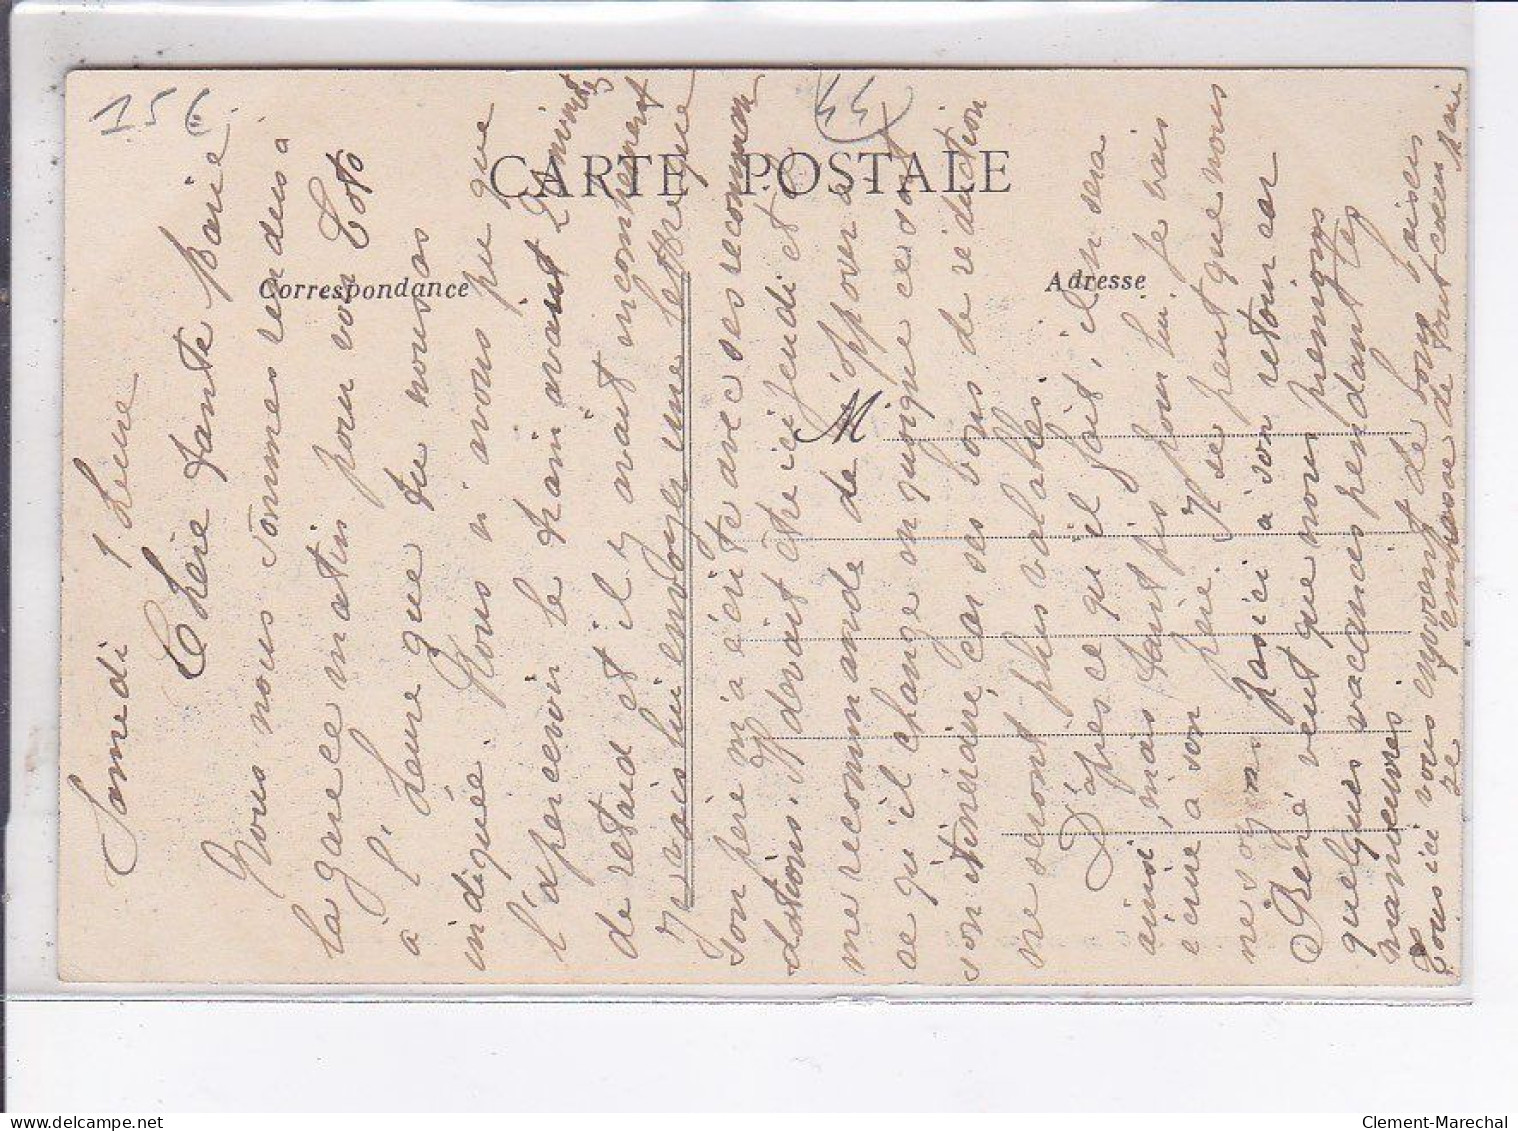 156
44
CARTE POSTALE
Correspondance
Adresse
M
Samedi 1 heure
Chère tante Marie
Nous nous sommes rendus à
la gare ce matin pour voir Toto
à l'heure que tu nous as
indiquée. Nous n'avons pu que
l'apercevoir le train avait 20 minutes
de retard et il y avait incombrement
Je vais lui envoyer une lettre que
son père m'a écrite avec ses recomman
dations. Il devait être ici jeudi et il
me recommande de s'opposer à
ce qu'il change en quoique ce soit
son itinéraire, car ses bons de réduction
ne seront plus valables.
D'après ce qu'il fait, il en sera
ainsi, mais tant pis pour lui. Je vais
écrire à son père. Il se peut que nous
ne soyons pas ici à son retour car
René veut que nous prenions
quelques vacances pendant les
manoeuvres.
Tous ici vous envoient de bons baisers
Je embrasse de tout coeur Marie
Clement-Marechal
delcampe.net